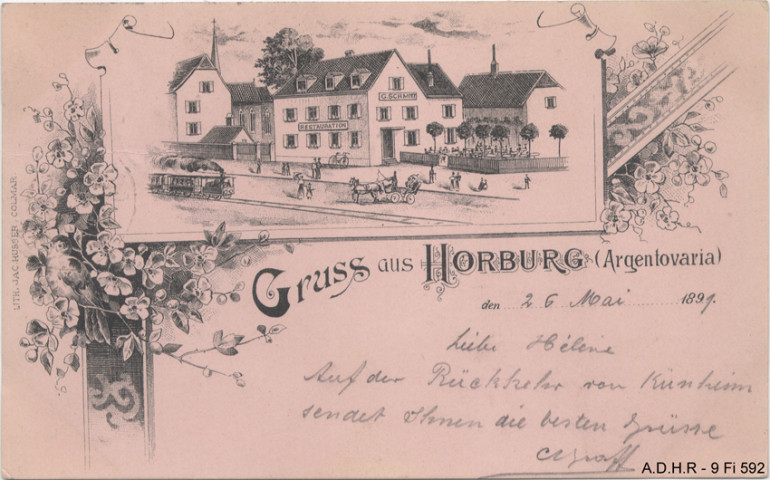 G. SCHMITT
RESTAURATION
LITH. JAC. HUSSER COLMAR
Gruss aus HORBURG (Argentovaria)
den 26 Mai 1899.
Liebe Hélène
Auf der Rückkehr von Künheim
sendet Ihnen die besten Grüsse
A.D.H.R - 9 Fi 592